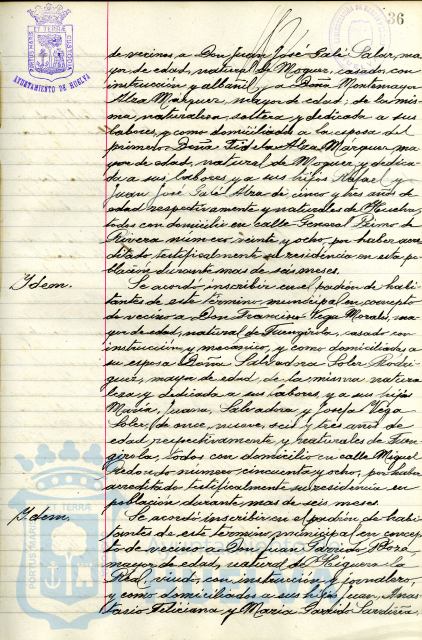 36
AYUNTAMIENTO DE HUELVA
de vecinos a Don Juan José Galé Salar, ma-
yor de edad, natural de Moguer, casado con
instrucción y albañil y a Doña Montemayor
Alza Márquez, mayor de edad, de la mis-
ma naturaleza soltera y dedicada a sus
labores, y como domiciliados a la esposa del
primero Doña Alza Márquez ma-
yor de edad, natural de Moguer y dedica-
da a sus labores y a sus hijos Rafael y
Juan José Galé Alza de cinco y tres años de
edad respectivamente y naturales de Huelva,
todos con domicilio en calle General Primo de
Rivera número veinte y ocho, por haber acre-
ditado testificalmente su residencia en esta po-
blación durante mas de seis meses.
Idem.
Se acordó inscribir en el padrón de habi-
tantes de este término municipal en concepto
de vecino a Don Francisco Vega Morales, ma-
yor de edad, natural de Fuengirola, casado con
instrucción y mecánico, y como domiciliados a
su esposa Doña Salvadora Soler Rodri-
guez, mayor de edad, de la misma natura-
leza y dedicada a sus labores, y a sus hijos
María, Juana, Salvadora y Josefa Vega
Soler, de once, nueve, seis y tres años de
edad respectivamente y naturales de Fuen-
girola, todos con domicilio en calle Miguel
Redondo número cincuenta y ocho, por haber
acreditado testificalmente su residencia en
población durante mas de seis meses.
Idem.
Se acordó inscribir en el padrón de habi-
tantes de este término municipal en concep-
to de vecino a Don Juan Garrido
mayor de edad, natural de Higuera la
Real, viudo, con instrucción y jornalero,
y como domiciliados a sus hijos Juan, Anas-
tasio Feliciana y María Garrido Sardiña,